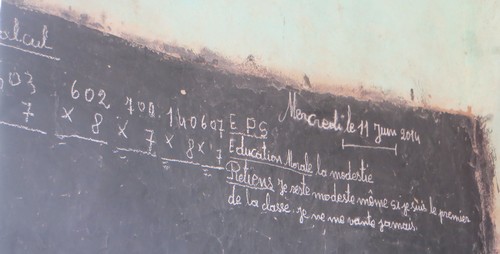 Calcul
Mercredi le 11 Juin 2014
603 602 700 140 607
7 × 8 × 7 × 8 × 7
E P S
Education Morale la modestie
Retiens Je reste modeste même si je suis le premier
de la classe. je ne me vante jamais.